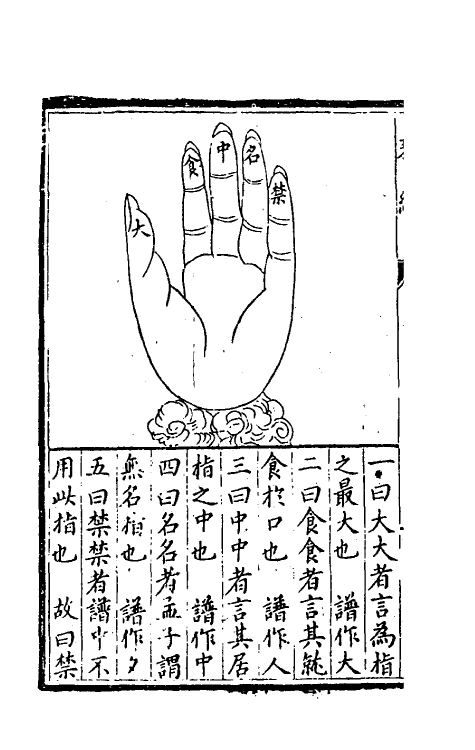 大
食
中
名
禁
一曰大大者言為指
之最大也　譜作大
二曰食食者言其能
食於口也　譜作人
三曰中中者言其居
指之中也　譜作中
四曰名名者孟子謂
無名指也　譜作夕
五曰禁禁者譜中不
用此指也　故曰禁